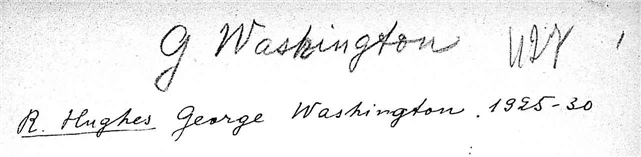 G Washington
R. Hughes George Washington. 1925-30